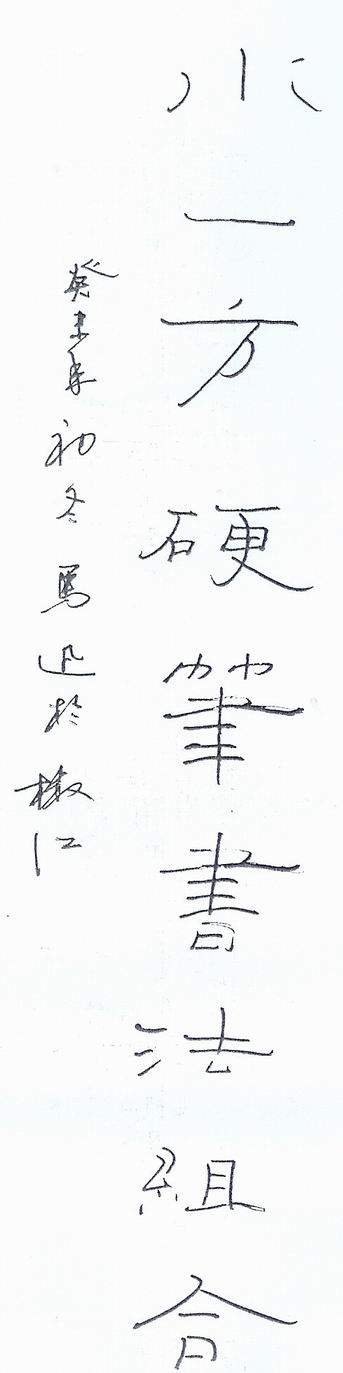 水一方硬筆書法組合
癸未年初冬馬迅於椒江